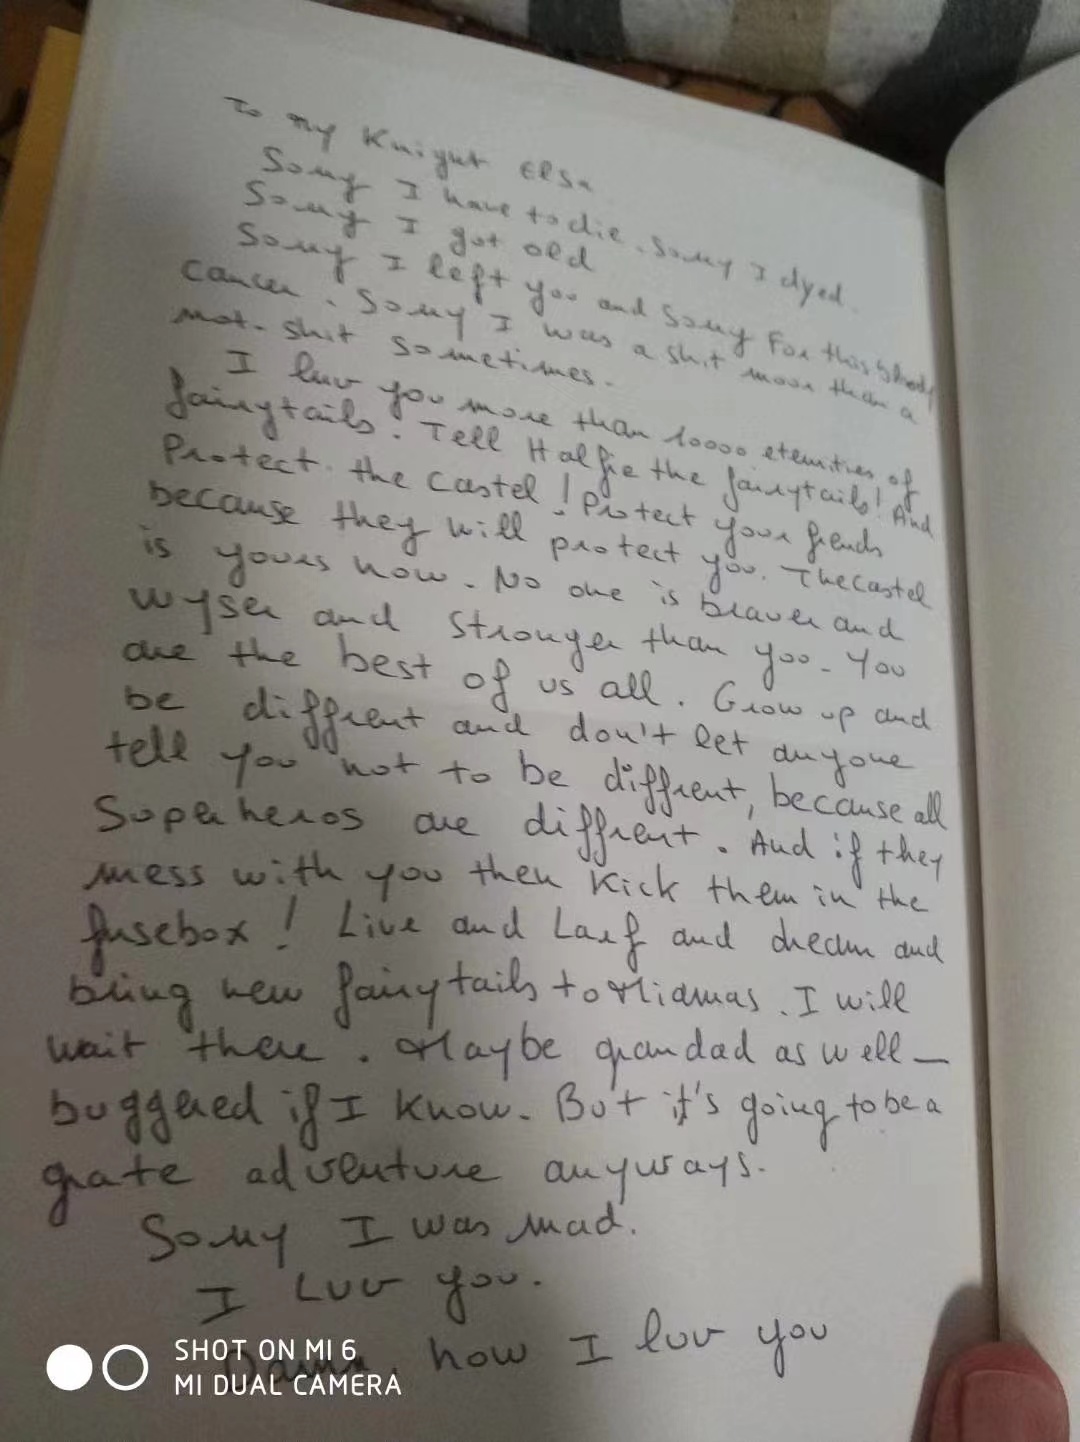 To my Knight Elsa
Sorry I have to die. Sorry I dyed.
Sorry I got old
Sorry I left you and sorry For this bloody
cancer. Sorry I was a shit moor than a
not-shit sometimes.
I luv you more than 10000 eternities of
fairytails. Tell Halfie the fairytails! And
Protect the castel! Protect your frends
because they will protect you. The castel
is yours now. No one is braver and
wyser and stronger than you. You
are the best of us all. Grow up and
be diffrent and don't let anyone
tell you not to be diffrent, because all
Superheros are diffrent. And if they
mess with you then Kick them in the
fusebox! Live and Larf and dream and
bring new fairytails to Miamas. I will
wait there. Maybe grandad as well—
buggered if I know. But it's going to be a
grate adventure anyways.
Sorry I was mad.
I Luv you.
Damn, how I luv you
SHOT ON MI 6
MI DUAL CAMERA